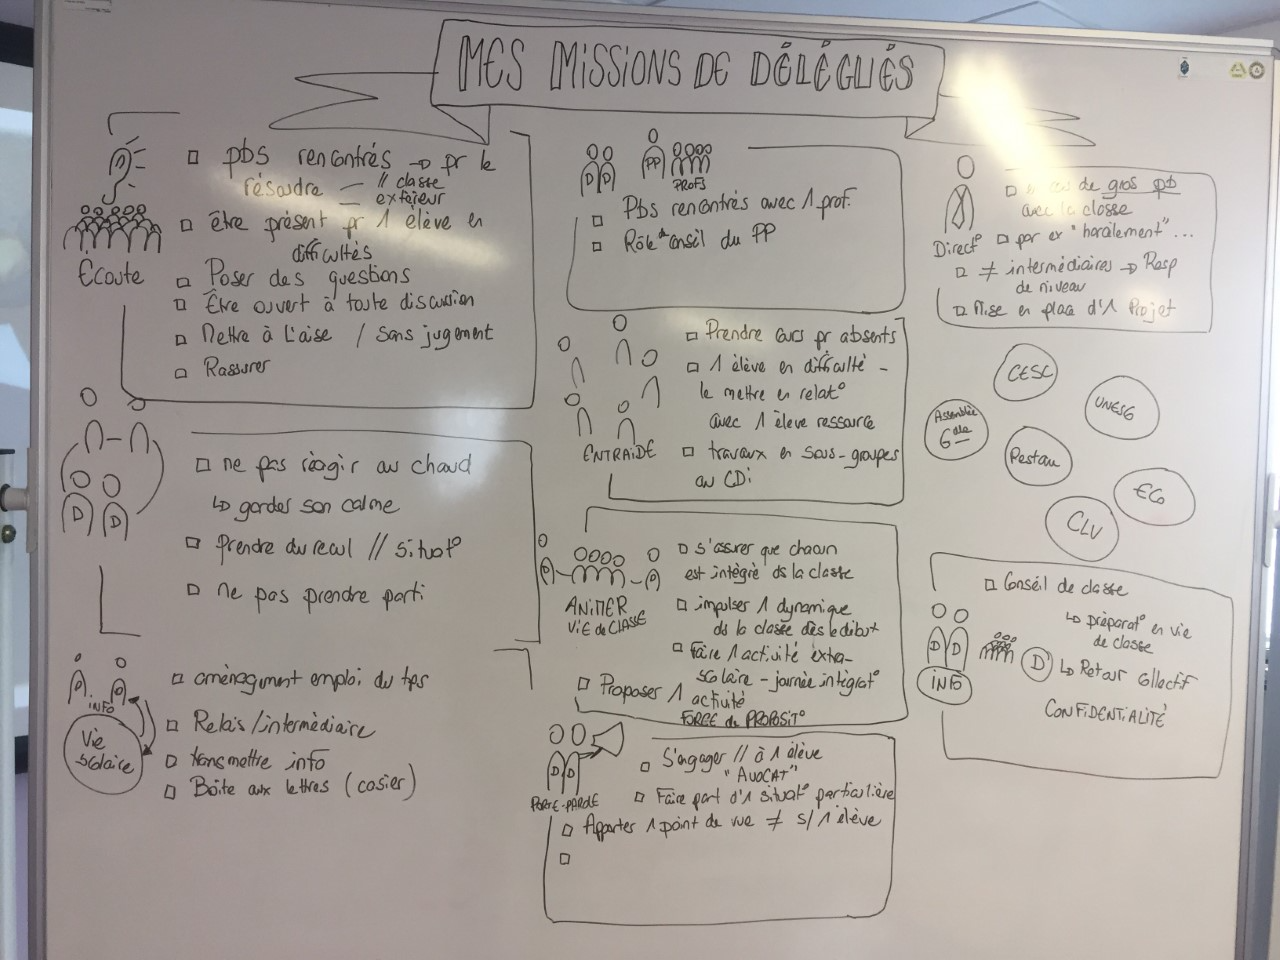 MES MISSIONS DE DÉLÉGUÉS
□ pbs rencontrés → pr le
résoudre — // classe
— extérieur
□ être présent pr 1 élève en
difficultés
□ Poser des questions
□ Être ouvert à toute discussion
□ Mettre à l'aise / sans jugement
□ Rassurer
Écoute
□ ne pas réagir au chaud
↳ garder son calme
□ prendre du recul // situat°
□ ne pas prendre parti
D D
□ aménagement emploi du tps
□ Relais/intermédiaire
□ transmettre info
□ Boîte aux lettres (casier)
INFO
Vie
scolaire
D D
PP
PROFS
□ Pbs rencontrés avec 1 prof.
□ Rôle conseil du PP
□ Prendre cours pr absents
□ 1 élève en difficulté -
le mettre en relat°
avec 1 élève ressource
□ travaux en sous-groupes
au CDi
ENTRAiDE
□ s'assurer que chacun
est intégré ds la classe
□ impulser 1 dynamique
ds la classe dès le début
□ Faire 1 activité extra-
scolaire - journée intégrat°
□ Proposer 1 activité
FORCE de PROPOSIT°
D D
ANIMER
ViE de CLASSE
□ S'engager // à 1 élève
"AVOCAT"
□ Faire part d'1 situat° particulière
□ Apporter 1 point de vue ≠ s/ 1 élève
□
D D
PORTE-PAROLE
□ de gros pb
avec la classe
□ par ex "harcèlement"...
□ ≠ intermédiaires → Resp
de niveau
□ Mise en place d'1 Projet
Direct°
CESC
UNESG
Assemblée
6ème
Restau
ECO
CLV
□ Conseil de classe
↳ préparat° en vie
de classe
D' ↳ Retour collectif
CONFIDENTIALITÉ
D D
iNFO